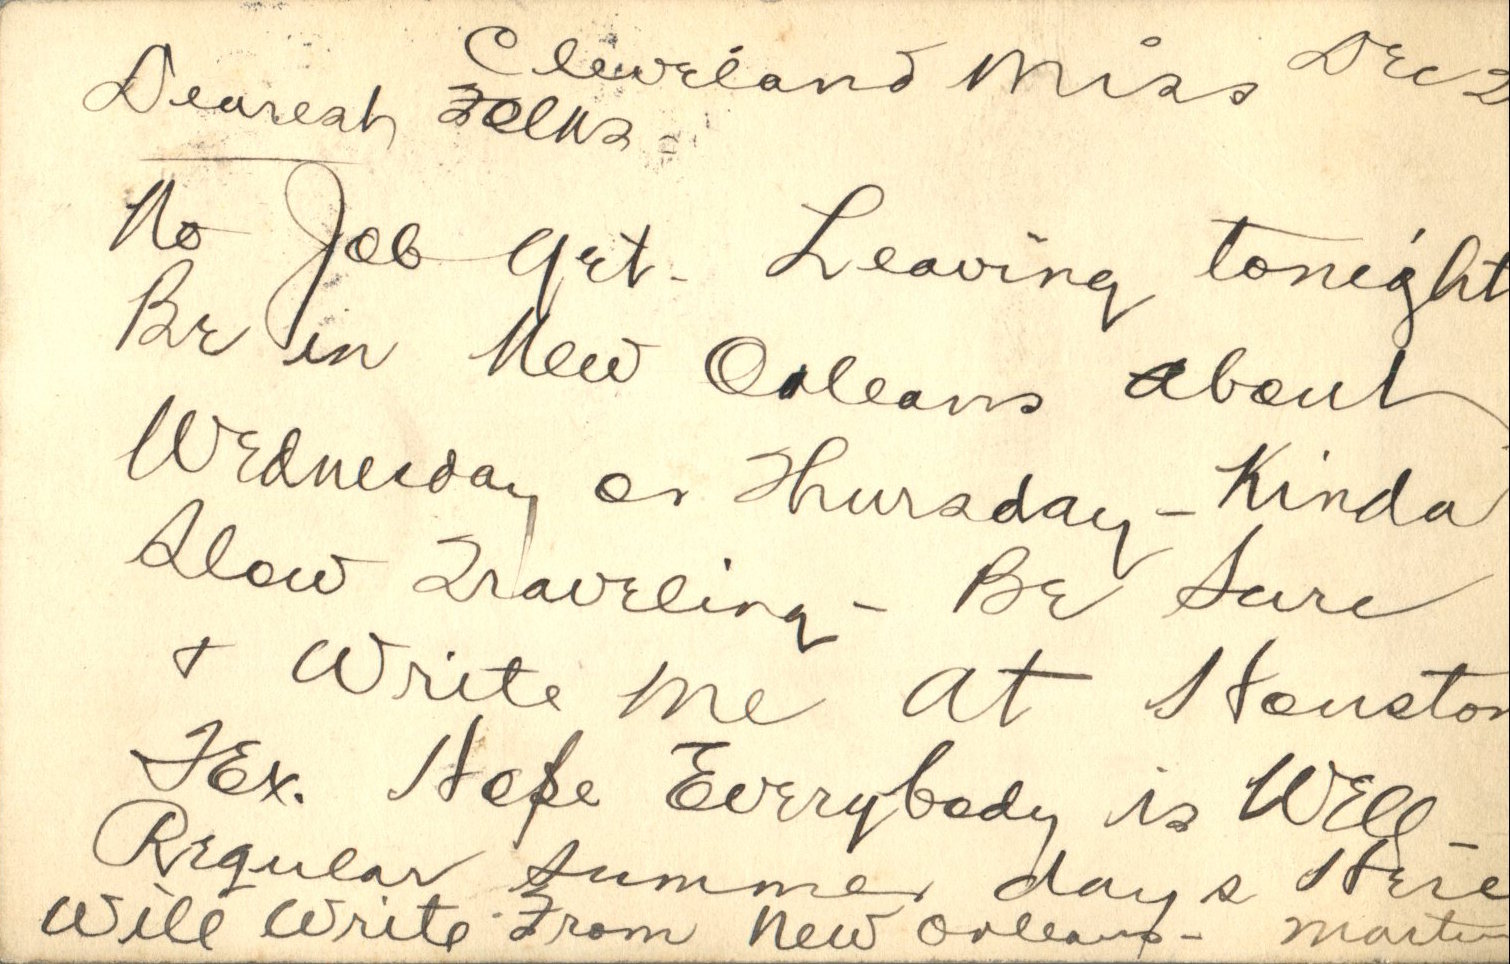 Cleveland Miss Dec 2
Dearest Folks
No Job yet. Leaving tonight
Be in New Orleans about
Wednesday or Thursday - Kinda
Slow Traveling - Be Sure
+ Write Me at Houston
Tex. Hope Everybody is Well -
Regular summer days Here
Will Write From New Orleans - Martin